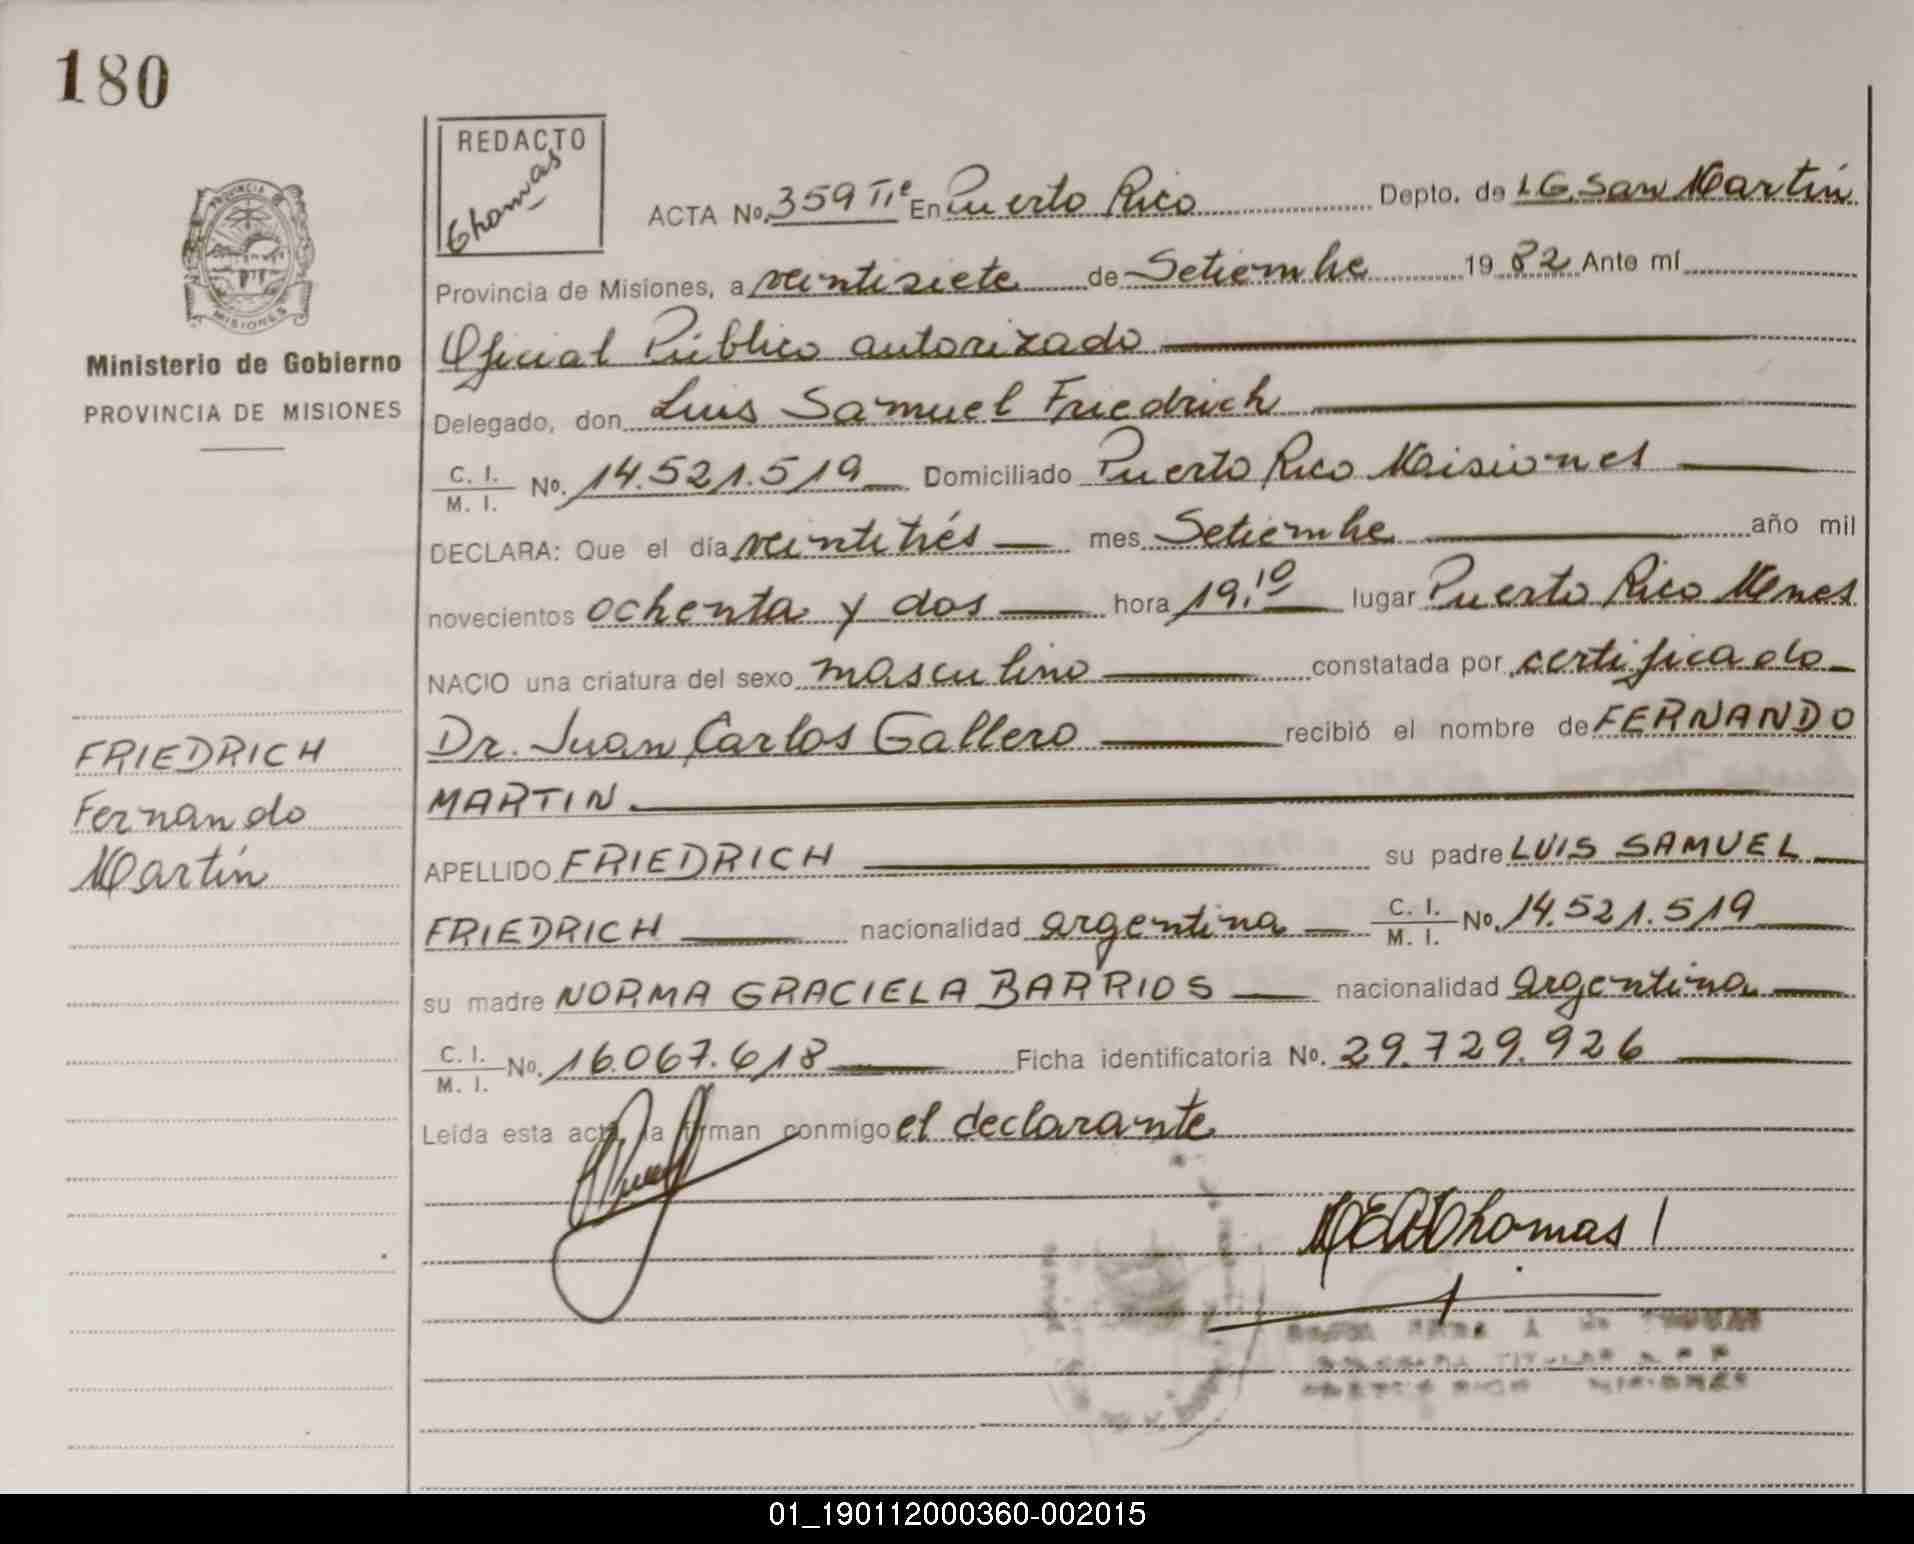 180
REDACTO
Thomas
ACTA No. 359 IIº En Puerto Rico Depto. de L.G. San Martín
Provincia de Misiones, a veintisiete de Setiembre 19 82 Ante mí
Oficial Público autorizado
Delegado, don Luis Samuel Friedrich
C. I.
M. I. No. 14.521.519 Domiciliado Puerto Rico Misiones
DECLARA: Que el día veintitrés mes Setiembre año mil
novecientos ochenta y dos hora 19,10 lugar Puerto Rico Mnes
NACIO una criatura del sexo masculino constatada por certificado
Dr. Juan Carlos Gallero recibió el nombre de FERNANDO
MARTIN
APELLIDO FRIEDRICH su padre LUIS SAMUEL
FRIEDRICH nacionalidad argentina C. I. M. I. No. 14.521.519
su madre NORMA GRACIELA BARRIOS nacionalidad argentina
C. I.
M. I. No. 16.067.618 Ficha identificatoria No. 29.729.926
Leída esta acta, la firman conmigo el declarante
Thomas
PROVINCIA
MISIONES
Ministerio de Gobierno
PROVINCIA DE MISIONES
FRIEDRICH
Fernando
Martín
01_190112000360-002015